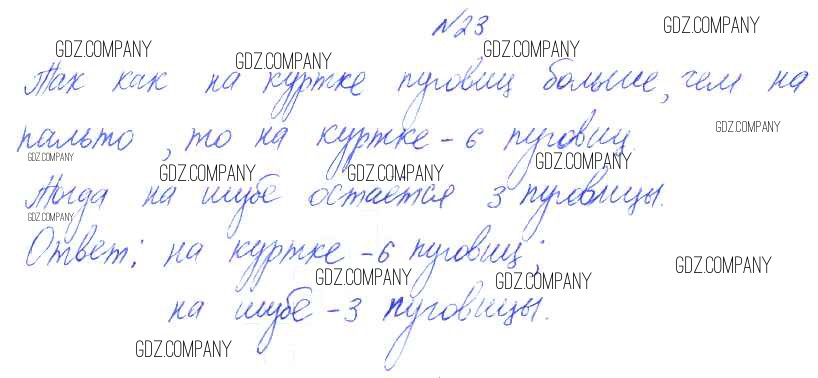 №23
GDZ.COMPANY
GDZ.COMPANY GDZ.COMPANY GDZ.COMPANY
Так как на куртке пуговиц больше, чем на
пальто, то на куртке - 6 пуговиц.
GDZ.COMPANY
GDZ.COMPANY GDZ.COMPANY GDZ.COMPANY GDZ.COMPANY
Тогда на шубе остается 3 пуговицы.
GDZ.COMPANY
Ответ: на куртке - 6 пуговиц;
GDZ.COMPANY GDZ.COMPANY GDZ.COMPANY
на шубе - 3 пуговицы.
GDZ.COMPANY